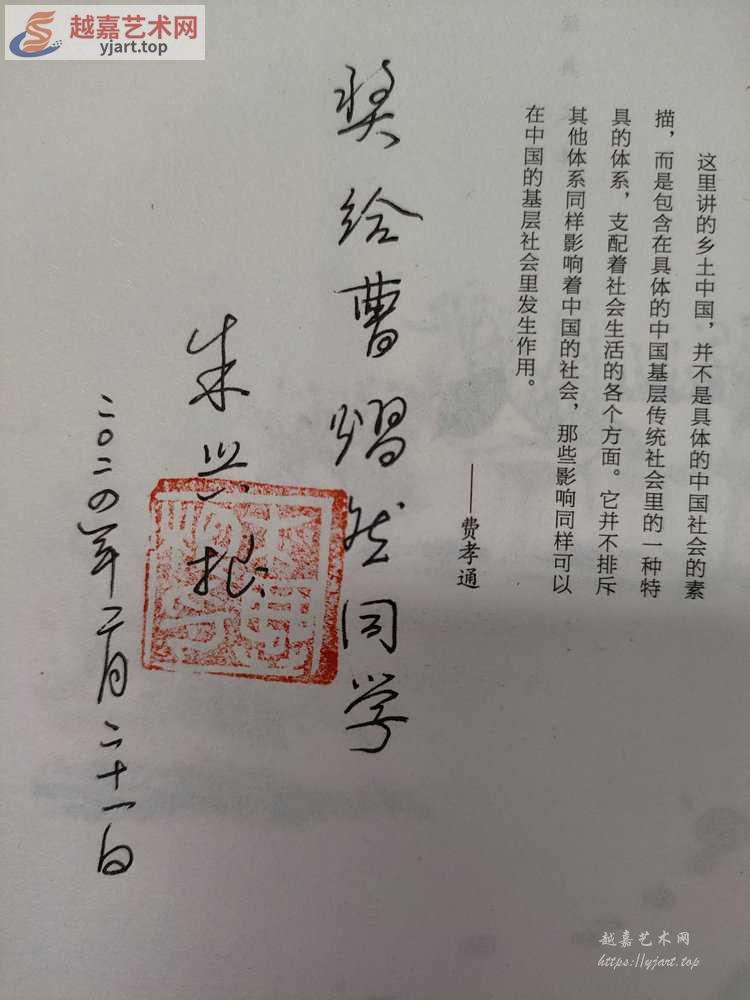 越嘉艺术网
yjart.top
这里讲的乡土中国，并不是具体的中国社会的素
描，而是包含在具体的中国基层传统社会里的一种特
具的体系，支配着社会生活的各个方面。它并不排斥
其他体系同样影响着中国的社会，那些影响同样可以
在中国的基层社会里发生作用。
——费孝通
奖给曹熠然同学
朱兴根
二〇二四年二月二十一日
越嘉艺术网
https://yjart.top